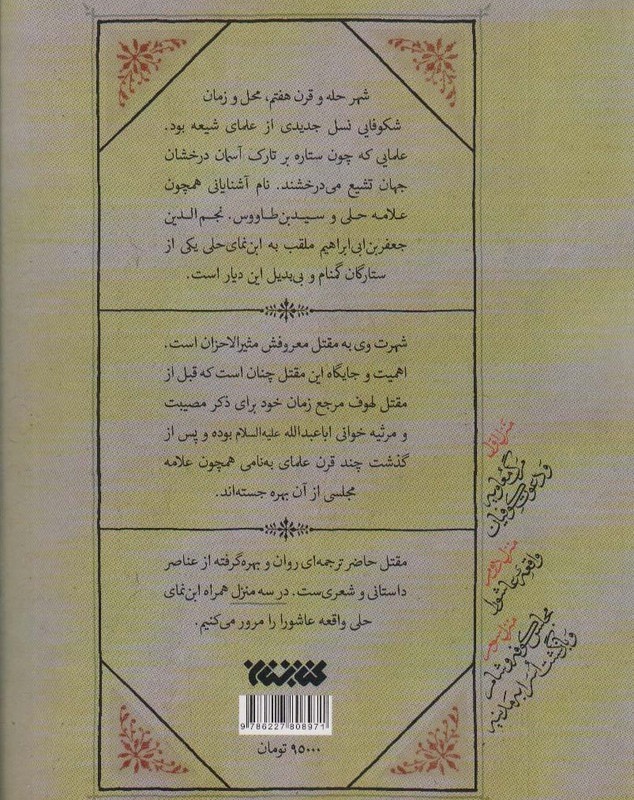 شهر حله و قرن هفتم، محل و زمان
شکوفایی نسل جدیدی از علمای شیعه بود.
علمایی که چون ستاره بر تارک آسمان درخشان
جهان تشیع می‌درخشند. نام آشنایانی همچون
علامه حلی و سیدبن‌طاووس. نجم‌الدین
جعفربن‌ابی‌ابراهیم ملقب به ابن‌نمای‌حلی یکی از
ستارگان گمنام و بی‌بدیل این دیار است.
شهرت وی به مقتل معروفش مثیرالاحزان است.
اهمیت و جایگاه این مقتل چنان است که قبل از
مقتل لهوف مرجع زمان خود برای ذکر مصیبت
و مرثیه خوانی اباعبدالله علیه‌السلام بوده و پس از
گذشت چند قرن علمای به‌نامی همچون علامه
مجلسی از آن بهره جسته‌اند.
مقتل حاضر ترجمه‌ای روان و بهره‌گرفته از عناصر
داستانی و شعری‌ست. در سه منزل همراه ابن‌نمای
حلی واقعه عاشورا را مرور می‌کنیم.
منزل اول
مرگ معاویه
و دعوت کوفیان
منزل دوم
واقعه عاشورا
منزل سوم
مجلس کوفه و شام
و بازگشت اسرا به مدینه
کتابستان
9 786227 808971
۹۵۰۰۰ تومان